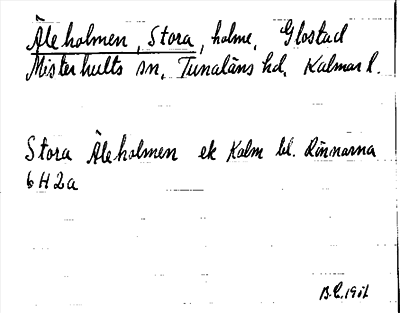 Åleholmen, Stora, holme, Glostad
Misterhults sn, Tunaläns hd, Kalmar l.
Stora Åleholmen ek Kalm bl. Rönnarna
6H2a